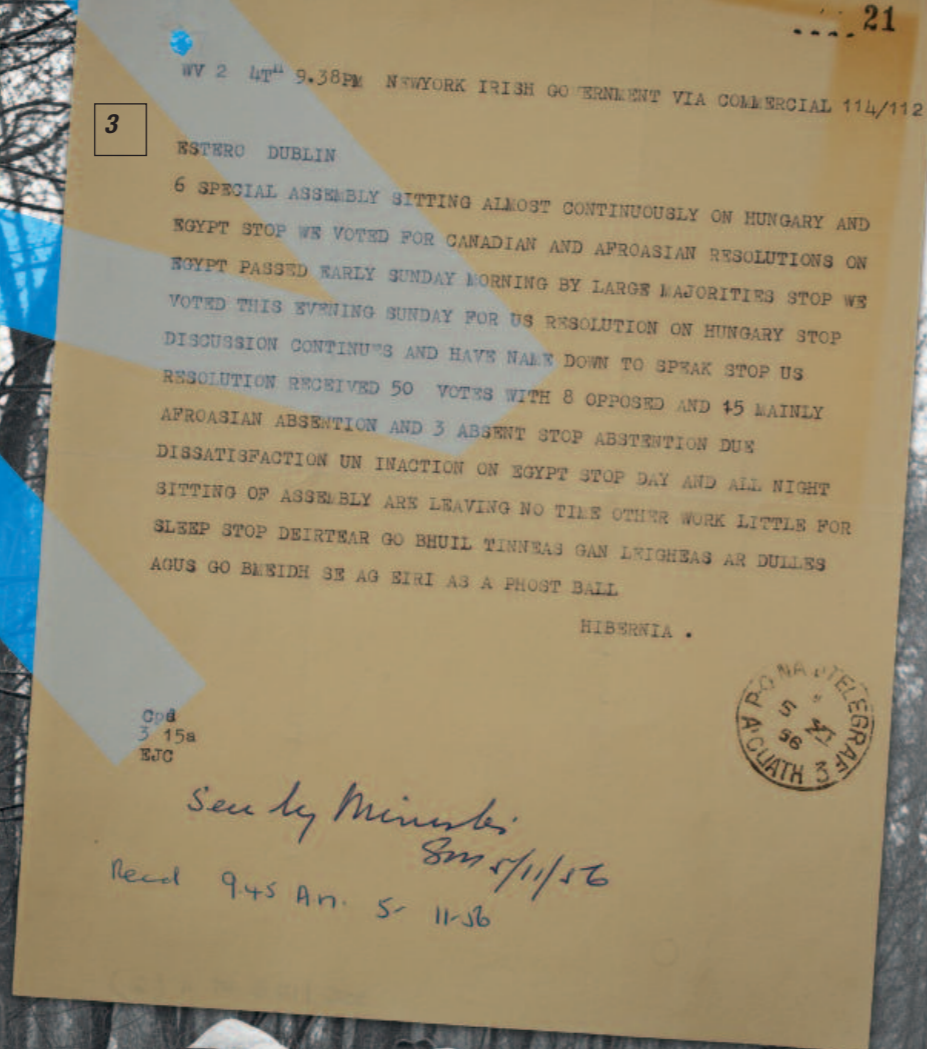 21
WV 2 4TH 9.38PM NEWYORK IRISH GO ERNMENT VIA COMMERCIAL 114/112
3
ESTERO DUBLIN
6 SPECIAL ASSEMBLY SITTING ALMOST CONTINUOUSLY ON HUNGARY AND
EGYPT STOP WE VOTED FOR CANADIAN AND AFROASIAN RESOLUTIONS ON
EGYPT PASSED EARLY SUNDAY MORNING BY LARGE MAJORITIES STOP WE
VOTED THIS EVENING SUNDAY FOR US RESOLUTION ON HUNGARY STOP
DISCUSSION CONTINUES AND HAVE NAME DOWN TO SPEAK STOP US
RESOLUTION RECEIVED 50 VOTES WITH 8 OPPOSED AND 15 MAINLY
AFROASIAN ABSENTION AND 3 ABSENT STOP ABSTENTION DUE
DISSATISFACTION UN INACTION ON EGYPT STOP DAY AND ALL NIGHT
SITTING OF ASSEMBLY ARE LEAVING NO TIME OTHER WORK LITTLE FOR
SLEEP STOP DEIRTEAR GO BHUIL TINNEAS GAN LEIGHEAS AR DULLES
AGUS GO BMEIDH SE AG EIRI AS A PHOST BALL
HIBERNIA .
Cpd
3 15a
EJC
P.O NA TELEGRAF
5
56
A CLIATH 3
Seen by Minister
5/11/56
Recd 9.45 Am. 5- 11-56